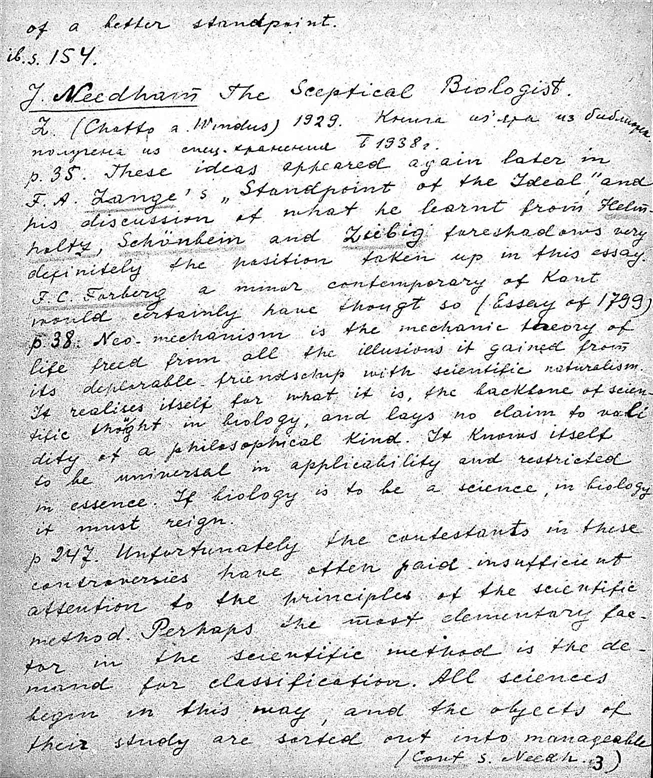 of a better standpoint.
ib. s. 154.
J. Needham The Sceptical Biologist.
L. (Chatto a. Windus) 1929. Книга из'ята из библиотек
получена из спец. хранения 1938г.
p. 35. These ideas appeared again later in
F. A. Lange's „Standpoint of the Ideal," and
his discussion of what he learnt from Helm-
holtz, Schönbein and Liebig foreshadows very
definitely the position taken up in this essay.
F. C. Forberg a minor contemporary of Kant
would certainly have thougt so (Essay of 1799)
p 38. Neo-mechanism is the mechanic theory of
life freed from all the illusions it gained from
its deplorable friendship with scientific naturalism.
It realises itself for what it is, the backbone of scien-
tific thoght in biology, and lays no claim to vali
dity of a philosophical kind. It knows itself
to be universal in applicability and restricted
in essence. If biology is to be a science, in biology
it must reign.
p 247. Unfortunately the contestants in these
controversies have often paid insufficient
attention to the principles of the scientific
method. Perhaps the most elementary fac-
tor in the scientific method is the de-
mand for classification. All sciences
begin in this way, and the objects of
their study are sorted out into manageable
(Cont s. Needh. 3)